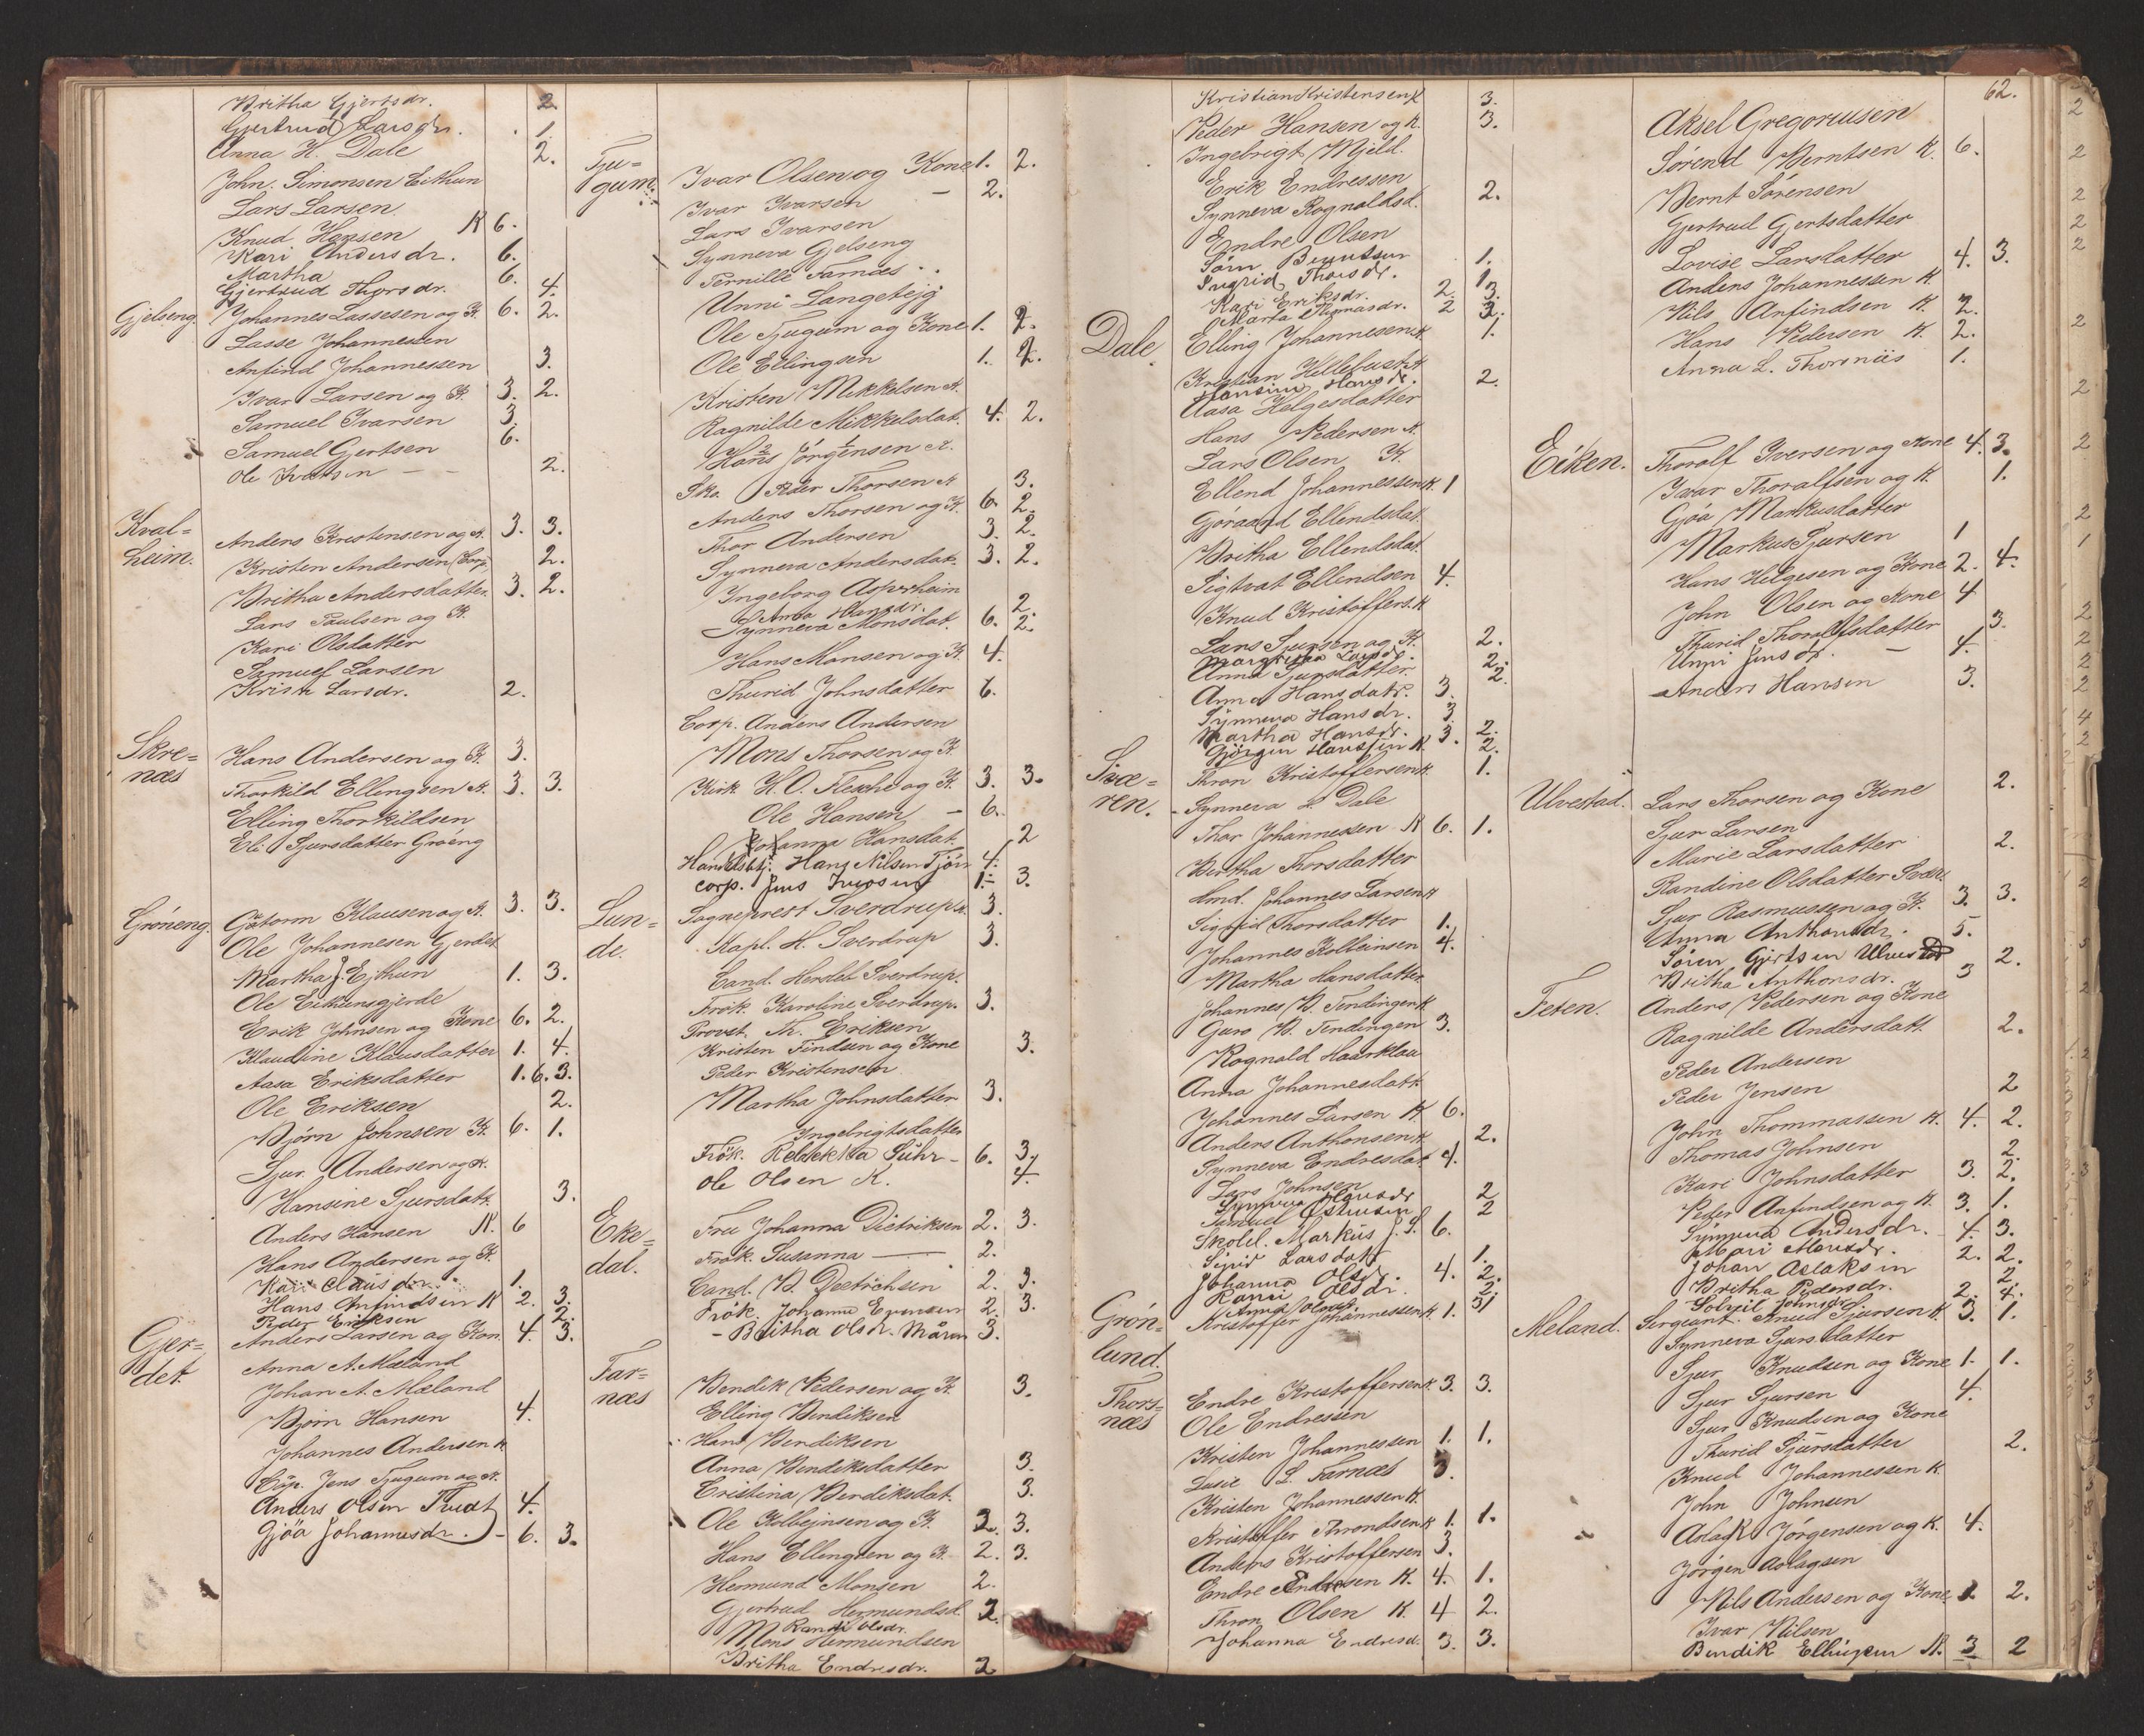 Britha Gjertsdr. 2.
Gjertrud Larsdr. 1.
Anna H. Dale 2.
John. Simonsen Eithun
Lars Larsen
Knud Hansen K 6.
Kari Andersdr. 6.
Martha 6.
Gjertrud Thorsdr. 4.
Gjelseng. Johannes Lassesen og K. 6. 2.
Lasse Johannessen
Anfind Johannessen 3.
Ivar Larsen og K. 3. 2.
Samuel Ivarsen 3.
Samuel Gjertsen 6.
Ole Ivarsen - - 2.
Kval=
heim. Anders Kristensen og K. 3. 3.
Kristen Andersen (Corp. 2.
Britha Andersdatter 3. 2.
Lars Paulsen og K.
Kari Olsdatter
Samuel Larsen
Kristi Larsdr. 2.
Skre=
næs Hans Andersen og K. 3.
Thorkild Ellingsen K. 3. 3.
Elling Thorkildsen
Eli Sjursdatter Grøeng
Grøneng. Gotorm Klausen og K. 3. 3.
Ole Johannesen Gjerdet
Martha J. Ejthun 1. 3.
Ole Eithunsgjerde
Erik Johnsen og Kone 6. 2.
Klaudine Klausdatter 1. 4.
Aasa Eriksdatter 1. 6. 3.
Ole Eriksen 2.
Bjørn Johnsen K. 6. 1.
Sjur Andersen og K.
Hansine Sjursdatt. 3.
Anders Hansen K. 6
Hans Andersen og K.
Kari Clausdr. 1.
Hans Anfindsen K 2. 3.
Peder Eriksen 2.
Gjer=
det. Anders Larsen og Kon. 4. 3.
Anna A. Mæland
Johan A. Mæland
Bjørn Hansen 4.
Johannes Andersen K
Cap. Jens Tjugum og K.
Anders Olsen Tvedt 4.
Gjøa Johannesdr. - 6. 3.
Tju=
gum. Ivar Olsen og Kone 1. 2.
Ivar Ivarsen - 2.
Lars Ivarsen
Synneva Gjelseng
Pernille Farnæs
Unni Langetejg
Ole Tjugum og Kone 1. 2.
Ole Ellingsen 1. 2.
Kristen Mikkelsen K.
Ragnilde Mikkelsdat. 4. 2.
Hans Jørgensen K.
Sko. Peder Thorsen K 3.
Anders Thorsen og K. 6. 2.
Thor Andersen 3. 2.
Synneva Andersdat. 3. 2.
Ingeborg Asperheim
Anna Hansdr. 2.
Synneva Monsdat. 6. 2.
Hans Monsen og K. 4.
Thurid Johnsdatter 6.
Corp. Anders Andersen
Mons Thorsen og K
Kirk. H. O. Flesche og K. 3. 3.
Ole Hansen - 6.
Johanna Hansdat. 2
Handelsbtj: Hans Nilsen Tjøn 4.
corp. Jens Iversen 1. 3.
Lun=
de. Sognepræst Sverdrup K. 3.
Kapl. H. Sverdrup 3.
Cand. Hersleb Sverdrup.
Frøk. Karoline Sverdrup. 3.
Provst. Th. Eriksen
Kristen Findsen og Kone 3.
Peder Kristensen
Martha Johnsdatter 3.
Ingebrigtsdatter
Frøk. Rebekka Suhr - 6. 3.
Ole Olsen K. 4.
Eke=
dal. Fru Johanna Dietriksen 2. 3.
Frøk. Susanna - 2.
Cand. B. Dietrichsen 2. 3.
Frøk. Johanne Evensen 2. 3.
- Britha Olsdr. Måren 3.
Far=
næs Bendik Pedersen og K. 3.
Elling Bendiksen
Hans Bendiksen
Anna Bendiksdatter 3.
Cristina Bendiksdat. 3.
Ole Kolbejnsen og K. 2. 3.
Hans Ellingsen og K. 2. 3.
Hermund Monsen 2.
Gjertrud Hermundsd. 2.
Randi Olsdr.
Mons Hermundsen
Britha Endresdr. 2
Kristian Kristensen K 3.
Peder Hansen og K. 3.
Ingebrigt Mjeld.
Erik Endressen
Synneva Rognaldsd. 2.
Endre Olsen
Søren Berntsen 1.
Ingrid Thorsdr. 1.
Kari Eriksdr. 2. 3.
Marta Thomasdr. 2 3.
Dale. Elling Johannesen K. 1.
Kristian Hellebust K
Hansine Hansdr. 2.
Aasa Helgesdatter
Hans Pedersen K.
Lars Olsen K.
Ellend Johannessen K. 1
Gøraand Ellendsdat.
Britha Ellendsdat.
Sigtvat Ellendsen 4.
Knud Kristoffers. K
Lars Sjursen og K. 2.
Margretha Larsdr. 2.
Anna Sjursdatter 2.
Anna Hansdatr. 3.
Synneva Hansdr. 3.
Martha Hansdr. 3. 2.
Gjørgen Hansen K. 2.
Svæ=
ren. Thron Kristoffersen K. 1.
Synneva L Dale
Thor Johannessen K 6. 1.
Bertha Thorsdatter
Lmd. Johannes Larsen K
Sigrid Thorsdatter 1.
Johannes Kolbeinsen 4.
Martha Hansdatter
Johannes B. Tendingen K
Guro B. Tendingen 3.
Rognald Haarklau
Anna Johannesdatt.
Johannes Larsen K 6.
Anders Anthonsen K 2.
Synneva Endresdat. 4.
Lars Johnsen
Synneva Hansdr 2
Samuel Østensen 2
Skolel. Markus J. S. 6.
Sigrid Larsdatt. 1.
Johanna Olsdr. 4. 2.
Ranni Olsdr. 2.
Anna Olsdr. 3
Grøn-
lund. Kristoffer Johannessen K 1. 1
Thors=
næs Endre Kristoffersen K. 3. 3.
Ole Endressen
Kristen Johannessen 1. 1.
Lusie L. Farnæs 3.
Kristen Johannessen K.
Kristoffer Throndsen K 1. 1.
Anders Kristoffersen 3.
Endre Endresen K. 4. 1.
Thron Olsen K. 4 2.
Johanna Endresd. 3. 3.
62.
Aksel Gregoriusen
Sørend Berntsen K. 6.
Bernt Sørensen
Gjertrud Gjertsdatter
Lovise Larsdatter 4. 3.
Anders Johannessen K.
Nils Anfindsen K. 2.
Hans Pedersen K. 2.
Anna L. Thorsnæs 1.
Eiken. Thoralf Iversen og Kone 4. 3.
Ivar Thoralfsen og K. 1.
Gjøa Markusdatter
Markus Sjursen 1
Hans Helgesen og Kone 2. 4.
John Olsen og Kone 4
Thurid Thoralfsdatter 3.
Unni Jensdr. - 4.
Anders Hansen 3.
Ulvestad. Lars Thorsen og Kone 2.
Sjur Larsen
Marie Larsdatter 2.
Randine Olsdatter
Sjur Rasmussen og K. 3. 3.
Anna Anthonsdr. 5.
Søren Gjertsen Ulvestad 2.
Britha Anthonsdr. 3
Feten. Anders Pedersen og Kone
Ragnilde Andersdatt. 2.
Peder Andersen
Peder Jensen 2
John Thommassen K. 4. 2.
Thomas Johnsen 2.
Kari Johnsdatter 3. 2.
Peder Anfindsen og K. 3. 1.
Synneva Andersdr. 4. 3.
Mari Monsdr. 2. 2.
Johan Aslaksen 2.
Britha Pedersdr. 2. 4.
Solveil Johnsdr.
Meland. Sergeant. Knud Sjursen K. 3. 1.
Synneva Sjursdatter
Sjur Knudsen og Kone 1. 1.
Sjur Sjursen 4.
Sjur Knudsen og Kone
Thurid Sjursdatter 2.
Knud Johannessen K.
John Johnsen
Aslak Jørgensen og K. 4.
Jørgen Aslagsen
Nils Andersen og Kone 1. 2.
Ivar Nilsen
Bendik Ellingsen K. 3 2